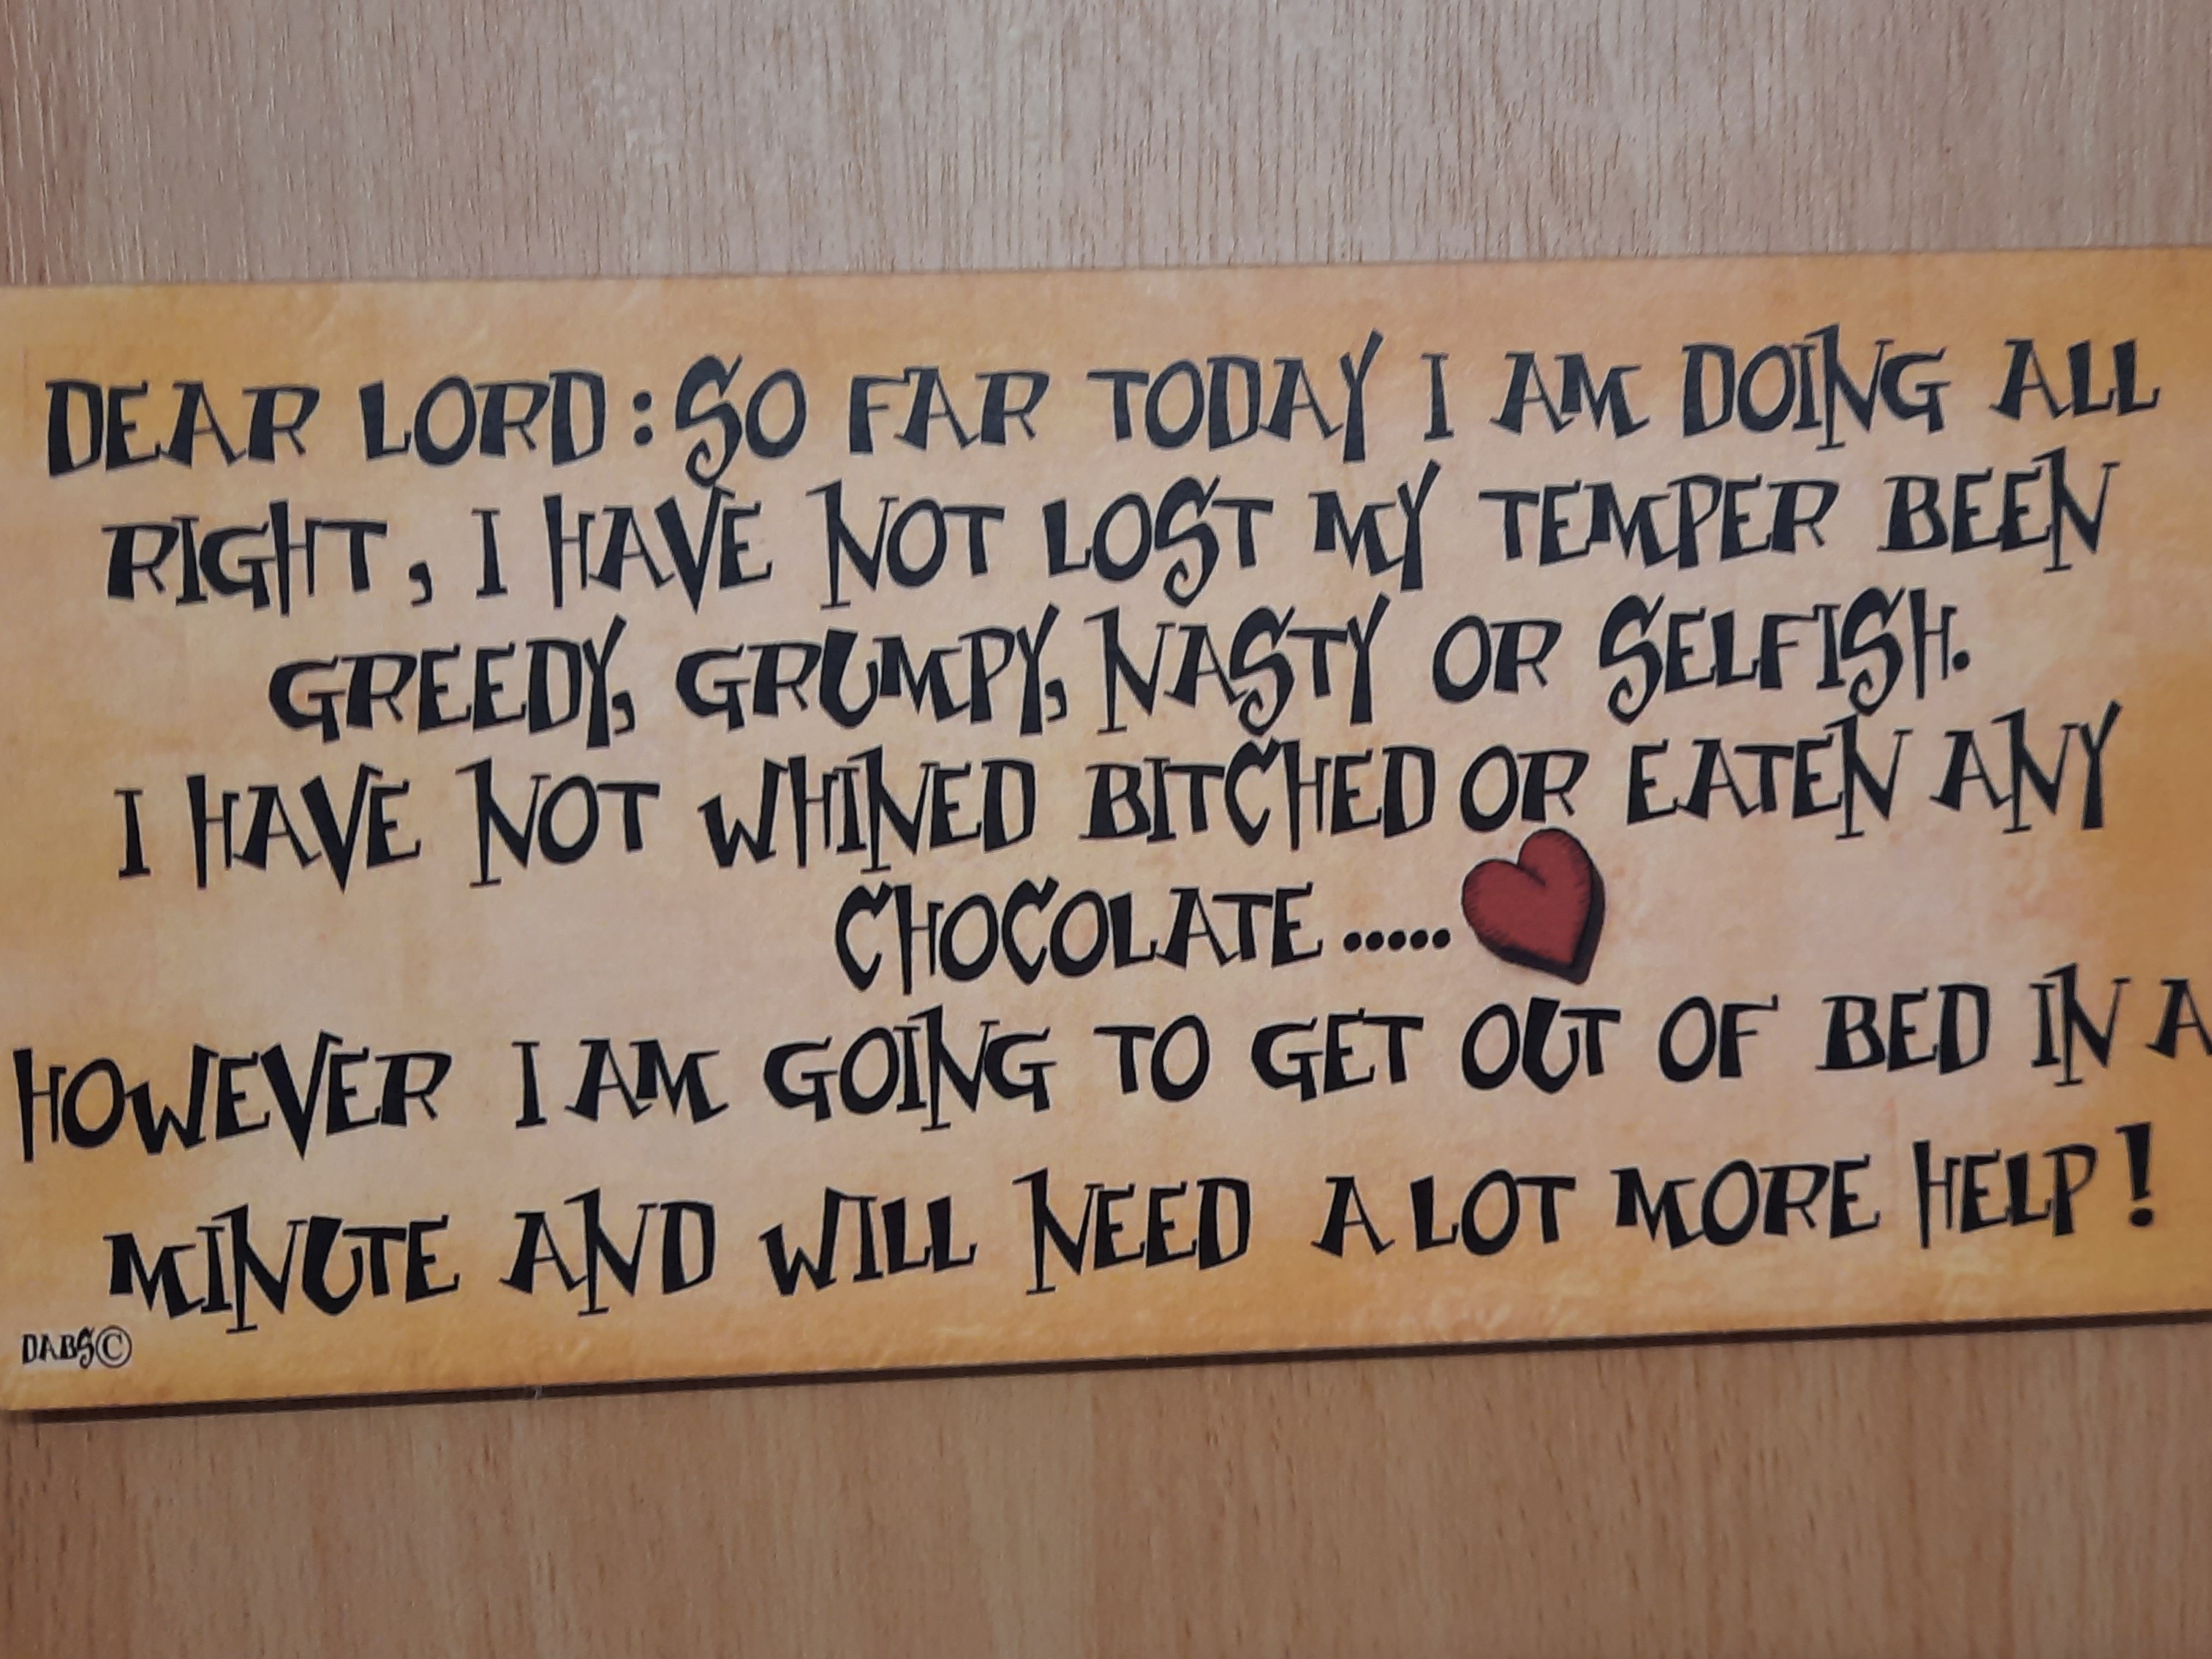 DEAR LORD: SO FAR TODAY I AM DOING ALL
RIGHT, I HAVE NOT LOST MY TEMPER BEEN
GREEDY, GRUMPY, NASTY OR SELFISH.
I HAVE NOT WHINED BITCHED OR EATEN ANY
CHOCOLATE.....
HOWEVER I AM GOING TO GET OUT OF BED IN A
MINUTE AND WILL NEED A LOT MORE HELP!
DABS©